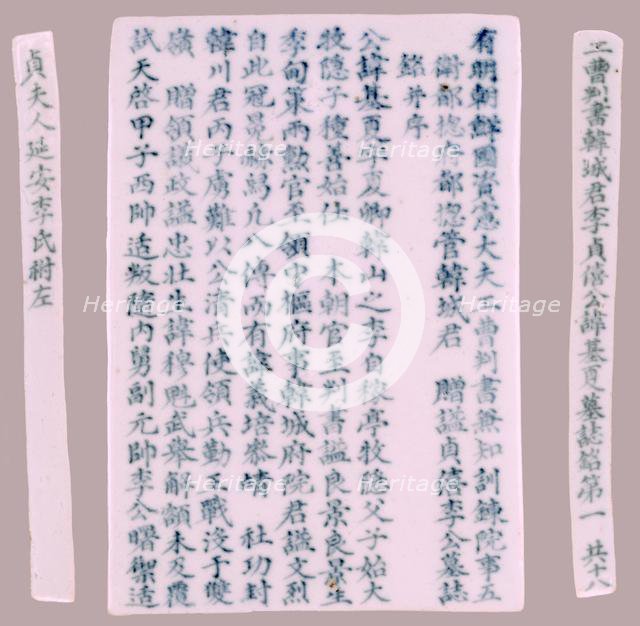 工曹判書韓城君李貞僖公諱基夏墓誌銘第一 共十八
有明朝鮮國資憲大夫工曹判書兼知訓鍊院事五
衛都摠府都摠管韓城君 贈謚貞僖李公墓誌
銘并序
公諱基夏字夏卿韓山之李自稼亭牧隱父子始大
牧隱子種善始仕 本朝官至判書謚良景良景生
季甸策兩勳官至領中樞府事韓城府院君謚文烈
自此冠冕 馬 傳而有諱義培參 社功封
韓川君丙子虜難以公清兵使領兵勤 戰沒于雙
嶺 贈領議政謚忠壯生諱穆魁武舉解額未及覆
試天啓甲子西帥适叛從內舅副元帥李公曙禦适
貞夫人延安李氏祔左
Heritage
Heritage
Heritage
Heritage
Heritage
Heritage
Heritage